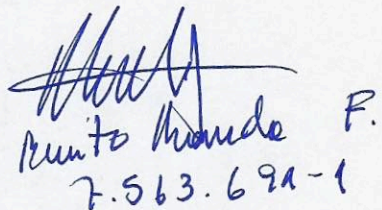 Benito Miranda F.
7.563.691-1